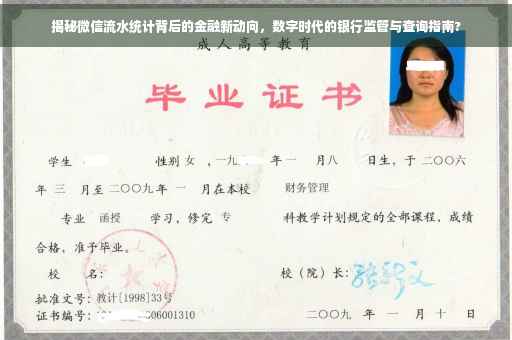 揭秘微信流水统计背后的金融新动向，数字时代的银行监管与查询指南?
成人高等教育
毕业证书
学生 性别 女 ，一九 年 一 月 八 日生，于 二〇〇六
年 三 月至 二〇〇九 年 一 月在本校 财务管理
专业 函授 学习，修完 专 科教学计划规定的全部课程，成绩
合格，准予毕业。
校 名： 校（院）长：
批准文号：教计[1998]33号
证书编号： 06001310 二〇〇九 年 一 月 十 日